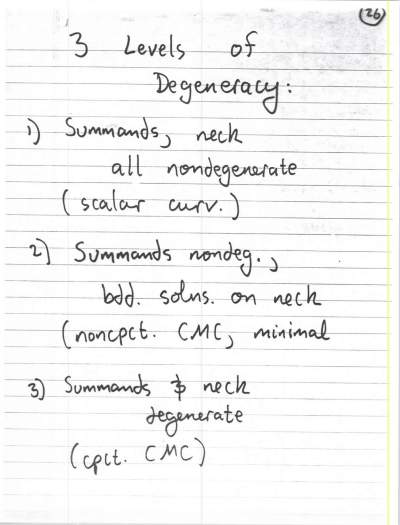 26
3 Levels of
Degeneracy:
1) Summands, neck
all nondegenerate
(scalar curv.)
2) Summands nondeg.,
bdd. solns. on neck
(noncpct. CMC, minimal
3) Summands & neck
degenerate
(cpct. CMC)